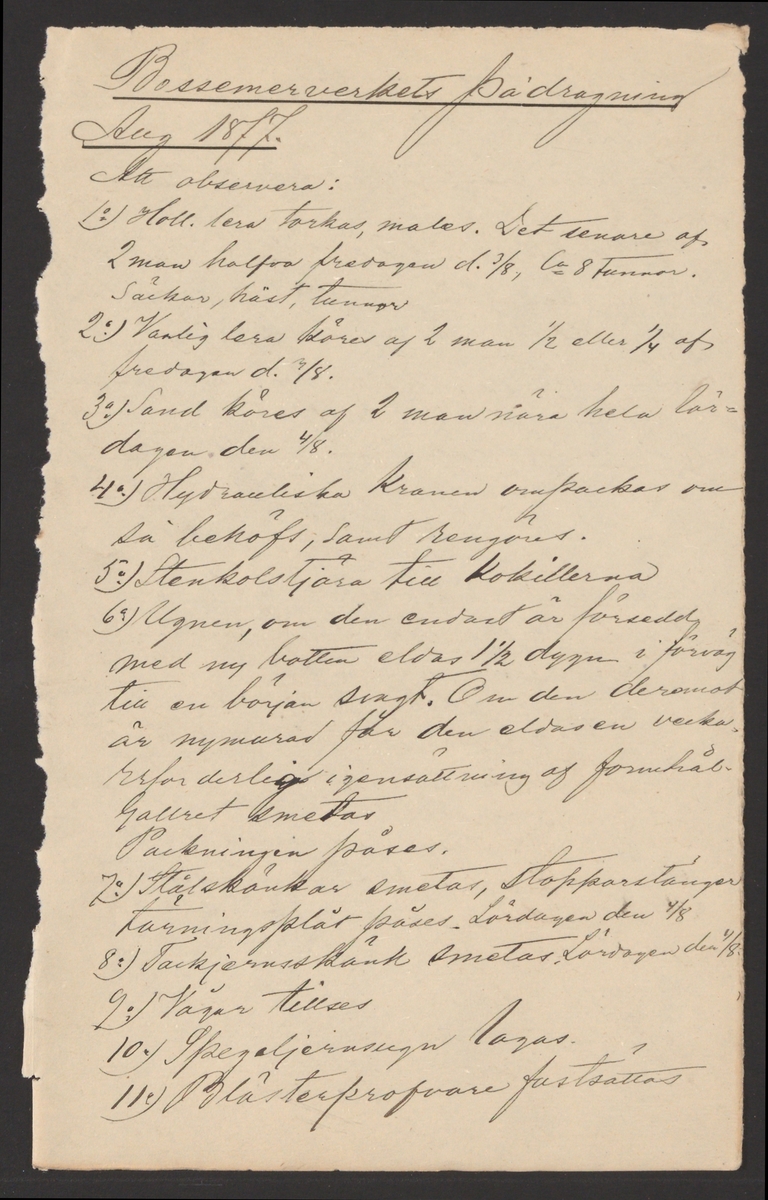 Bessemerverkets pådragning
Aug 1877.
Att observera:
1o) Holl. lera torkas, males. Det senare af
2 man halfva fredagen d. 3/8, Ca 8 tunnor.
Säckar, häst, tunnor
2o) Vanlig lera köres af 2 man 1/2 eller 1/4 af
fredagen d. 3/8.
3o) Sand köres af 2 man nära hela lör=
dagen den 4/8.
4o) Hydrauliska Kranen ompackas om
så behöfs, samt rengöres.
5o) Stenkolstjära till Kokillerna
6o) Ugnen, om den endast är försedd
med ny botten eldas 1 1/2 dygn i förväg
till en början svagt. Om den deremot
är nymurad får den eldas en vecka.
Erforderlig igensättning af
gallret smetas
Packningen påses.
7o) Stålskänkar smetas, stopparstänger
påses. Lördagen den 4/8
8o) Tackjernsskänk smetas. Lördagen den 4/8.
9o) Vågar tillses
10o) Spegeljernsugn lagas.
11o) Blästerprofvare fastsättas